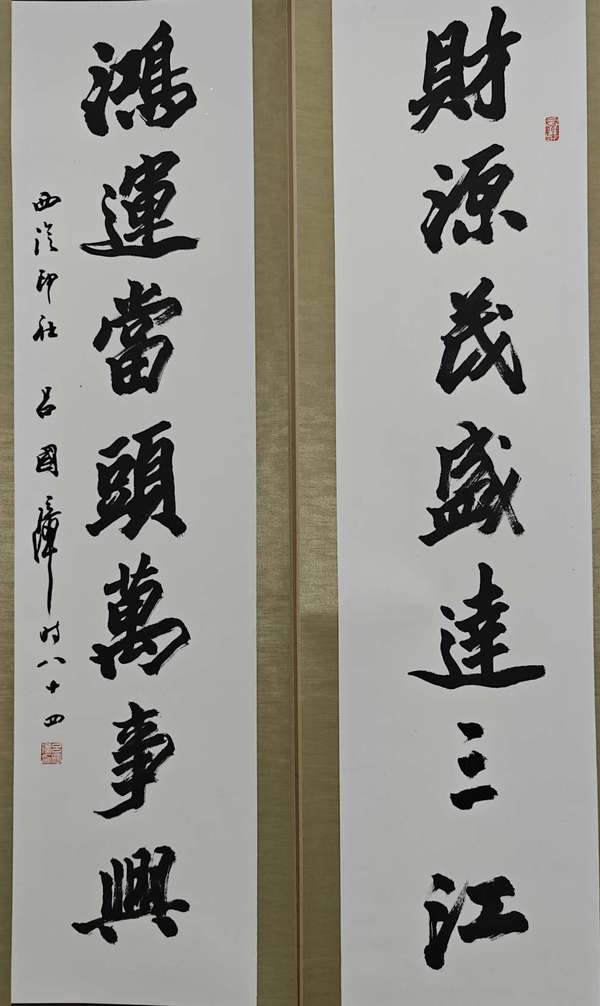 財源茂盛達三江
鴻運當頭萬事興
西泠印社 呂國璋時八十四